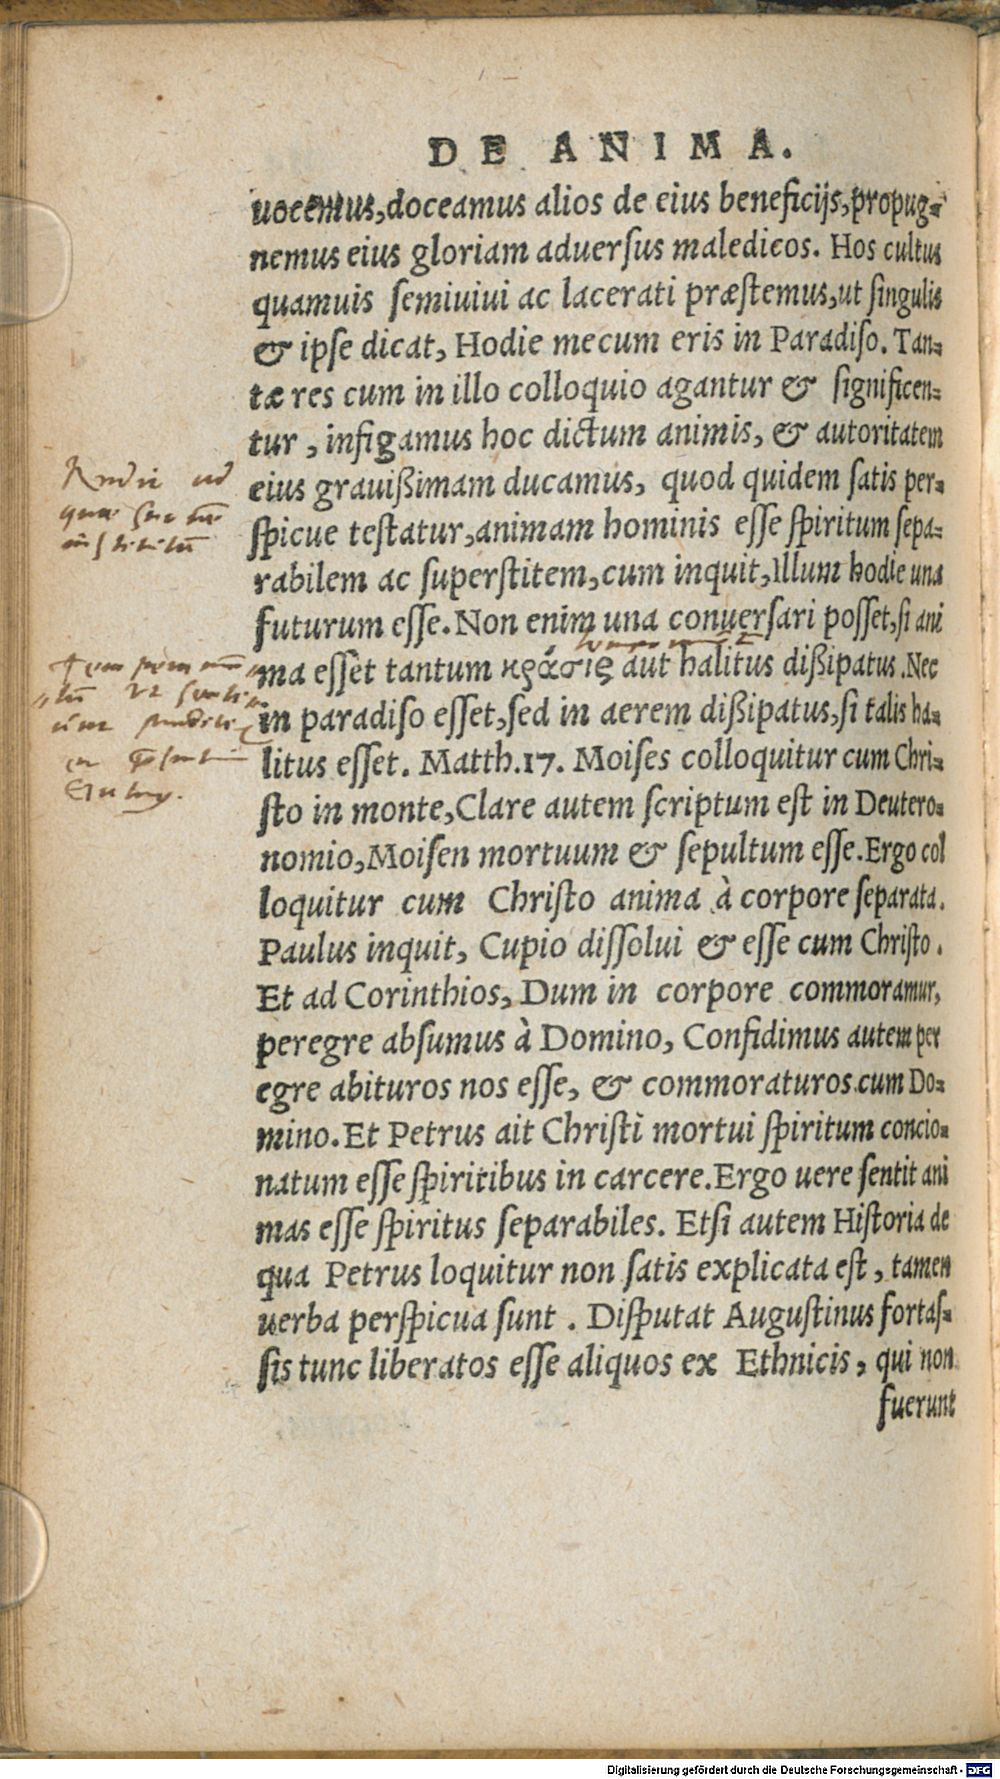 DE ANIMA.
uocemus,doceamus alios de eius beneficijs,propug-
nemus eius gloriam aduersus maledicos. Hos cultus
quamuis semiuiui ac lacerati præstemus,ut singulis
& ipse dicat, Hodie mecum eris in Paradiso. Tan-
tæ res cum in illo colloquio agantur & significen-
tur , infigamus hoc dictum animis, & autoritatem
eius grauißimam ducamus, quod quidem satis per-
spicue testatur,animam hominis esse spiritum sepa-
rabilem ac superstitem,cum inquit,Illum hodie una
futurum esse. Non enim una conuersari posset,si ani
ma esset tantum κρᾶσις aut halitus dißipatus. Nec
in paradiso esset,sed in aerem dißipatus,si talis ha-
litus esset. Matth.17. Moises colloquitur cum Chri-
sto in monte,Clare autem scriptum est in Deutero-
nomio,Moisen mortuum & sepultum esse. Ergo col
loquitur cum Christo anima à corpore separata.
Paulus inquit, Cupio dissolui & esse cum Christo.
Et ad Corinthios, Dum in corpore commoramur,
peregre absumus à Domino, Confidimus autem per
egre abituros nos esse, & commoraturos cum Do-
mino. Et Petrus ait Christi mortui spiritum concio-
natum esse spiritibus in carcere. Ergo uere sentit ani
mas esse spiritus separabiles. Etsi autem Historia de
qua Petrus loquitur non satis explicata est, tamen
uerba perspicua sunt . Disputat Augustinus fortas-
sis tunc liberatos esse aliquos ex Ethnicis, qui non
fuerunt
Digitalisierung gefördert durch die Deutsche Forschungsgemeinschaft - DFG